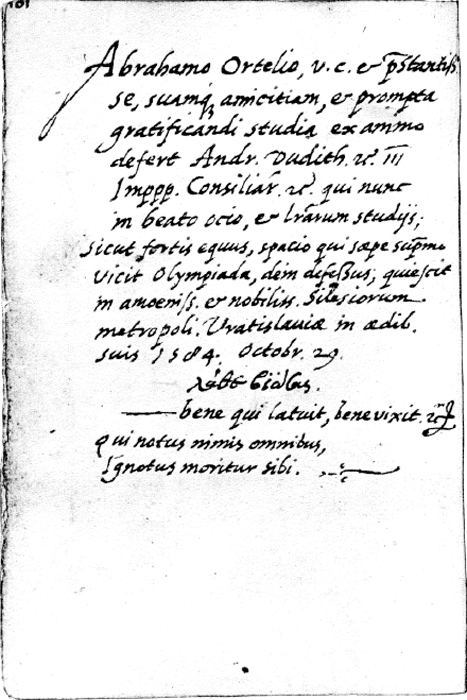 101
Abrahamo Ortelio, v. c. & p̄stantiss
se, suamq́ amicitiam, & prompta
gratificandi studia ex animo
defert Andr. Dudith. &c. III
Imppp. Consiliar. &c. qui nunc
in beato ocio, & lr̄arum studijs;
Sicut fortis equus, spacio qui sæpe sup̄mo
Vicit Olympiada, dein defessus, quiescit
in amoeniss. & nobiliss. Silesiorum
metropoli. Vratislauiæ in ædib.
suis 1584. Octobr. 29.
λάθε βιώσας.
— bene qui latuit, bene vixit. &c
Qui notus nimis omnibus,
Ignotus moritur sibi.